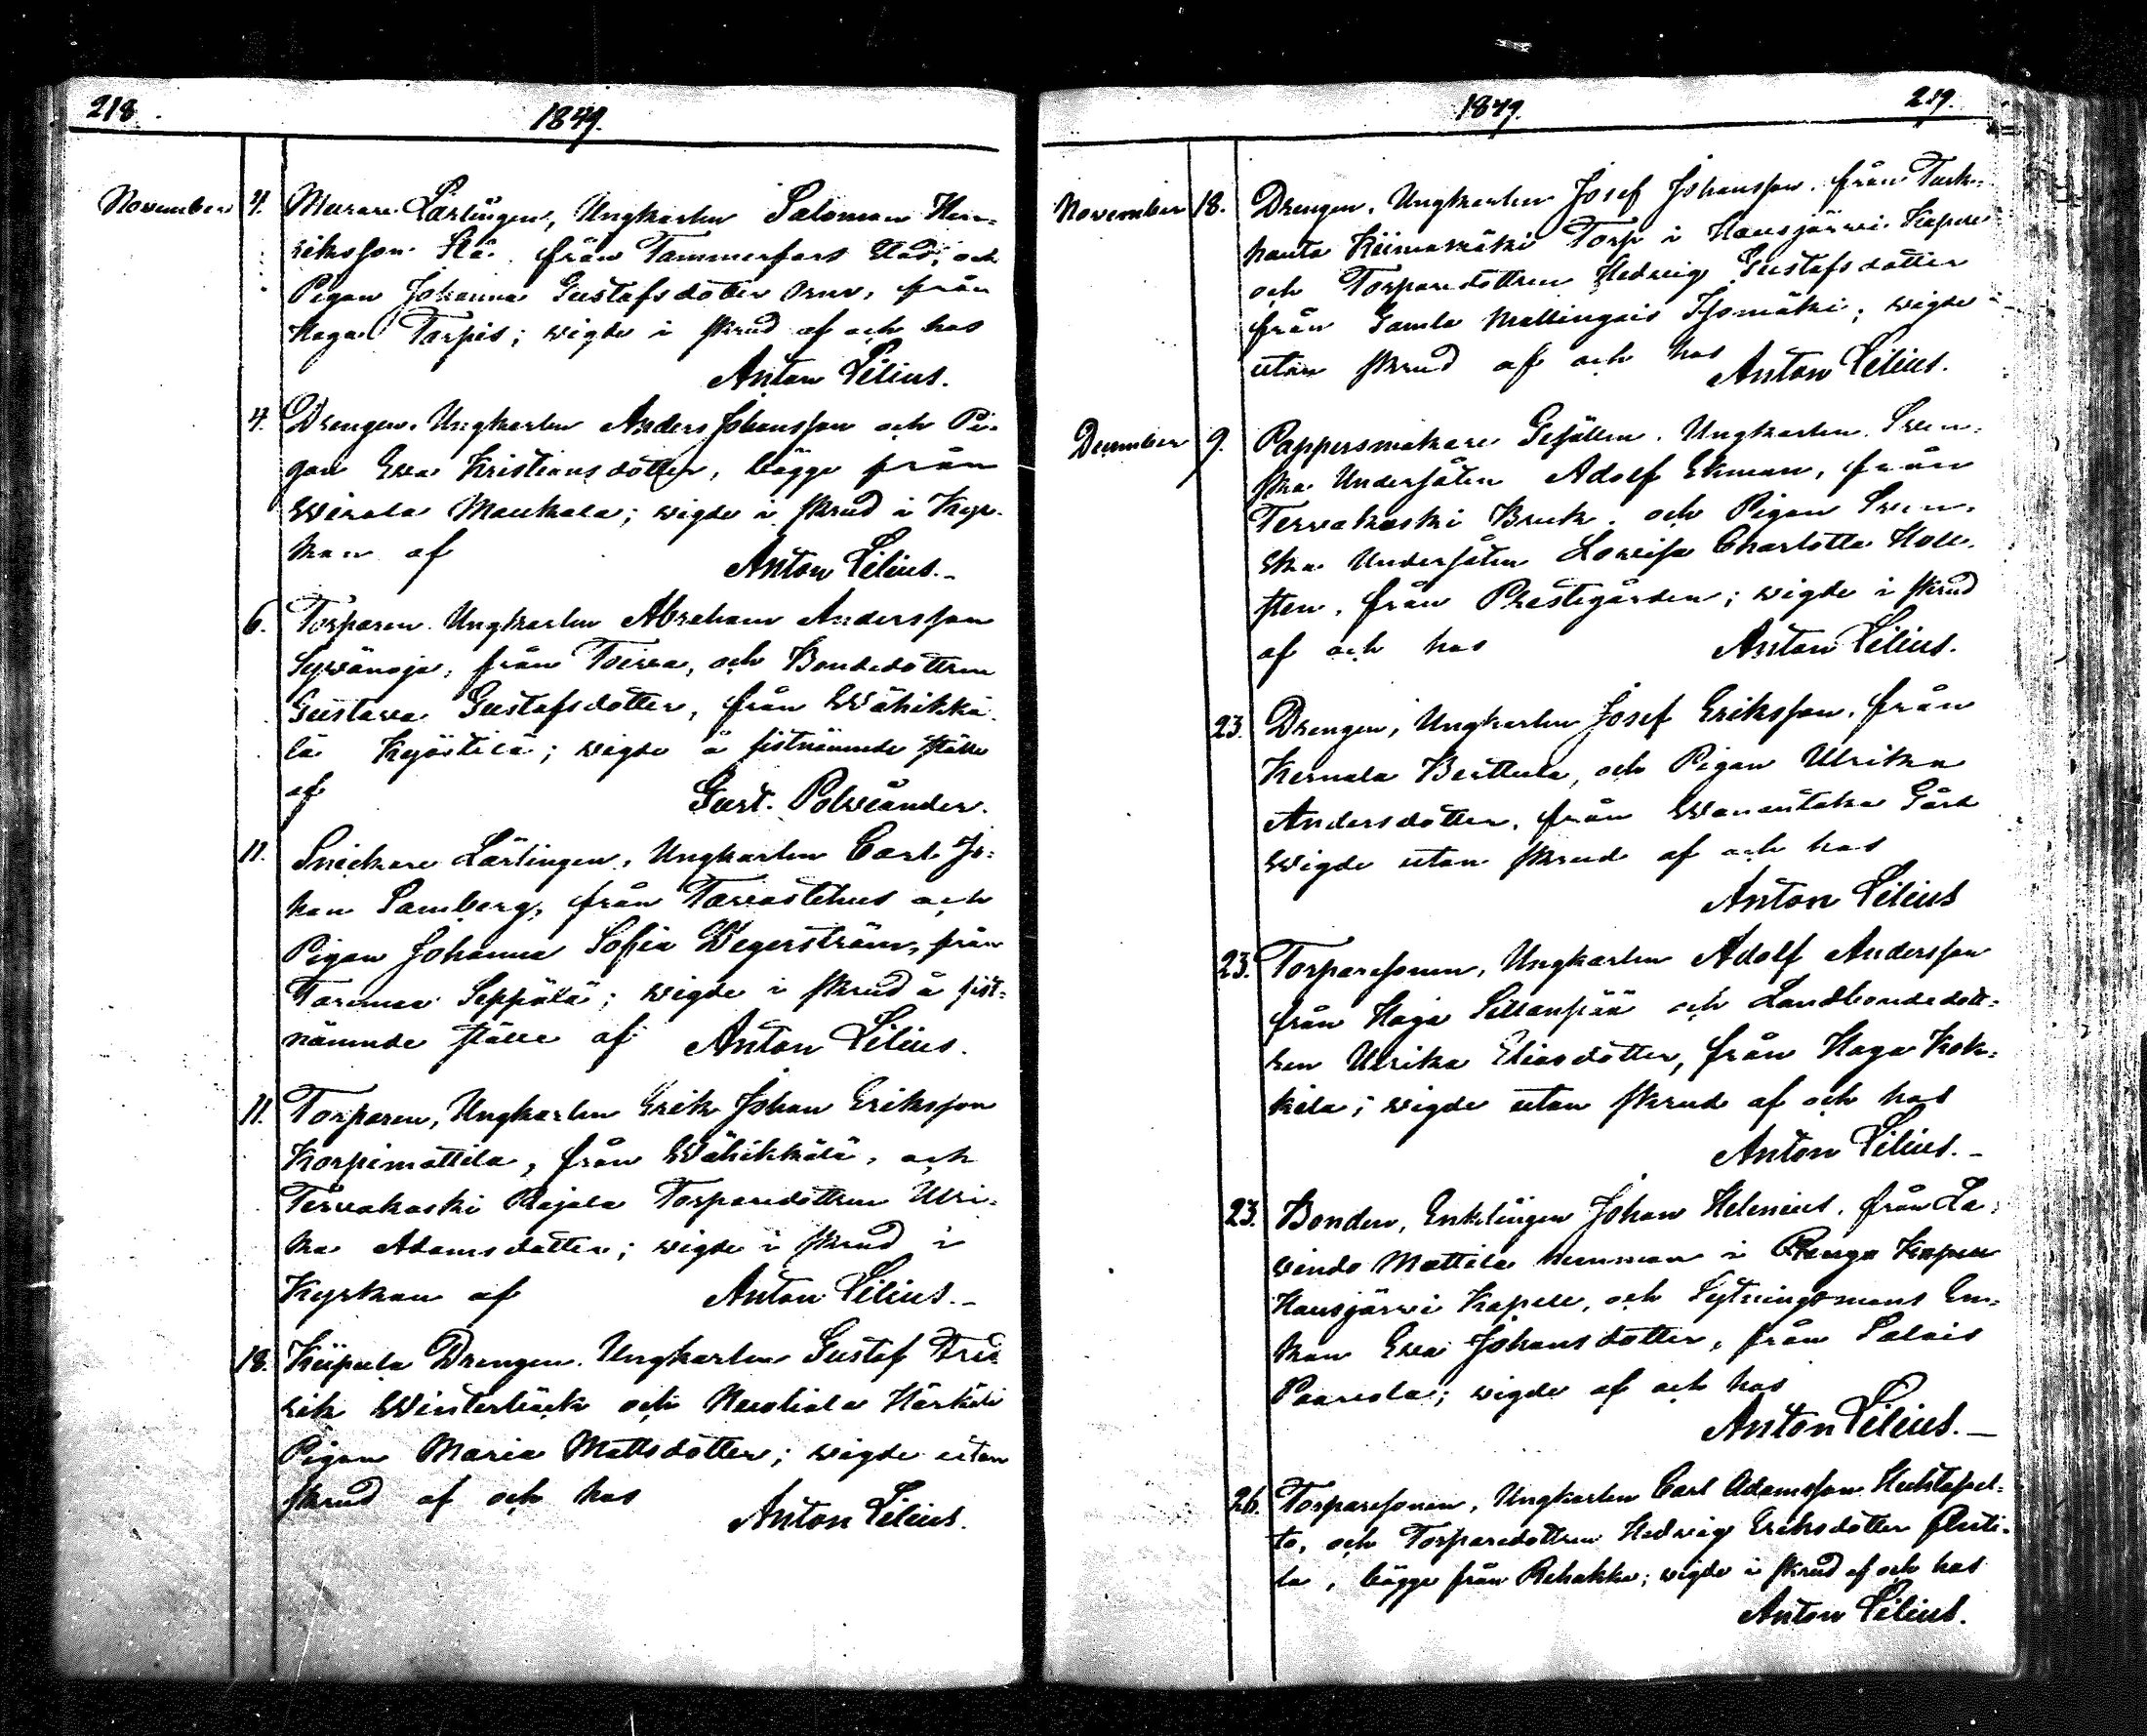 218.
1849.
November 4. Murare Lärlingen, Ungkarlen Salomon Hen-
riksson Stå, från Tammerfors Stad, och
Pigan Johanna Gustafsdotter Orur, från
Haga Torpis; wigde i skrud af och hos
Anton Lilius.
4. Drengen, Ungkarlen Anders Johansson och Pi-
gan Eva Kristiansdotter, bägge från
Wirala Maukala; wigde i skrud i Kyr-
kan af
Anton Lilius.
6. Torparen, Ungkarlen Abraham Andersson
Sywänoja, från Toiwa, och Bondedottren
Gustava Gustafsdotter, från Wähikkä-
lä Kyöstilä; wigde å sistnämnde ställe
af
Gust. Polviander.
11. Snickare Lärlingen, Ungkarlen Carl Jo-
han Lamberg, från Tavastehus och
Pigan Johanna Sofia Wegerström, från
Tarinmaa Seppälä; wigde i skrud å sist-
nämnde ställe af Anton Lilius.
11. Torparen, Ungkarlen Erik Johan Eriksson
Korpimattila, från Wähikkälä, och
Terwakoski Rajala Torparedottren Ulri-
ka Adamsdotter; wigde i skrud i
Kyrkan af Anton Lilius.
18. Kiipula Drengen, Ungkarlen Gustaf Fred
rik Winterbäck och Napiala Härkäli
Pigan Maria Mattsdotter; wigde utan
skrud af och hos
Anton Lilius.
1849.
219.
November 18. Drengen, Ungkarlen Josef Johansson, från Turk-
hauta Kiimamäki Torp i Hausjärwi Kapell
och Torparedottren Hedvig Gustafsdotter
från Gamla Mallingais Isomäki; wigde
utan skrud af och hos
Anton Lilius.
December 9. Pappersmakare Gesällen, Ungkarlen, Sven-
ska Undersåten Adolf Ekman, från
Terwakoski Bruk, och Pigan Sven-
ska Undersåten Lovisa Charlotta Holl-
sten, från Prestgården; wigde i skrud
af och hos
Anton Lilius.
23. Drengen, Ungkarlen Josef Eriksson, från
Kernala Berttula, och Pigan Ulrika
Andersdotter, från Wanantaka Gård
wigde utan skrud af och hos
Anton Lilius
23. Torparesonen, Ungkarlen Adolf Andersson
från Haga Sillanpää och Landbondedott-
ren Ulrika Eliasdotter, från Haga Kok-
kila; wigde utan skrud af och hos
Anton Lilius.
23. Bonden, Enklingen Johan Helenius, från La-
windo Mattila hemman i Rengo Kapell
Hausjärwi Kapell, och Sytningsmans En-
kan Eva Johansdotter, från Salois
Paavola; wigde af och hos
Anton Lilius.
26. Torparesonen, Ungkarlen Carl Adamsson Huhtapel-
to, och Torparedottren Hedvig Eriksdotter Anti-
la, bägge från Rehakka; wigde i skrud af och hos
Anton Lilius.